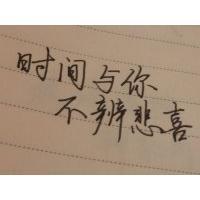 时间与你
不辨悲喜